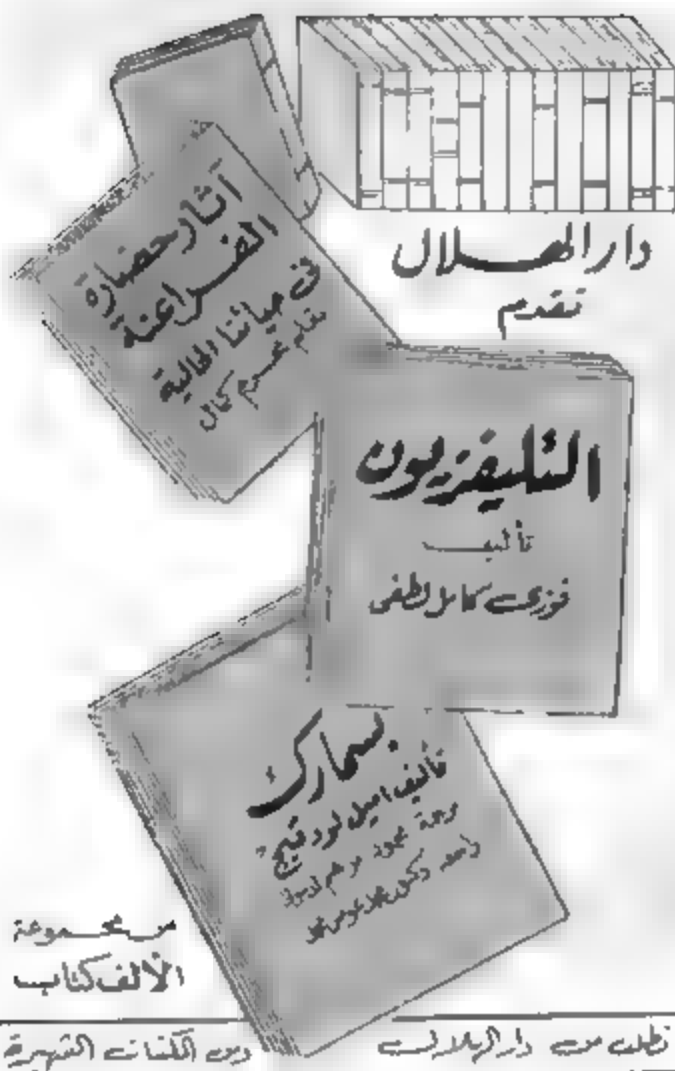 دار الهلال
تقدم
آثار حضارة
الفراعنة
فى حياتنا الحالية
بقلم محرم كمال
التليفزيون
تأليف
فوزى كامل لطفى
بسمارك
تأليف اميل لودفيج
ترجمة محمود ابراهيم
دكتور محمد عوض محمد
من مجموعة
الألف كتاب
تطلب من دار الهلال
ومن المكتبات الشهيرة